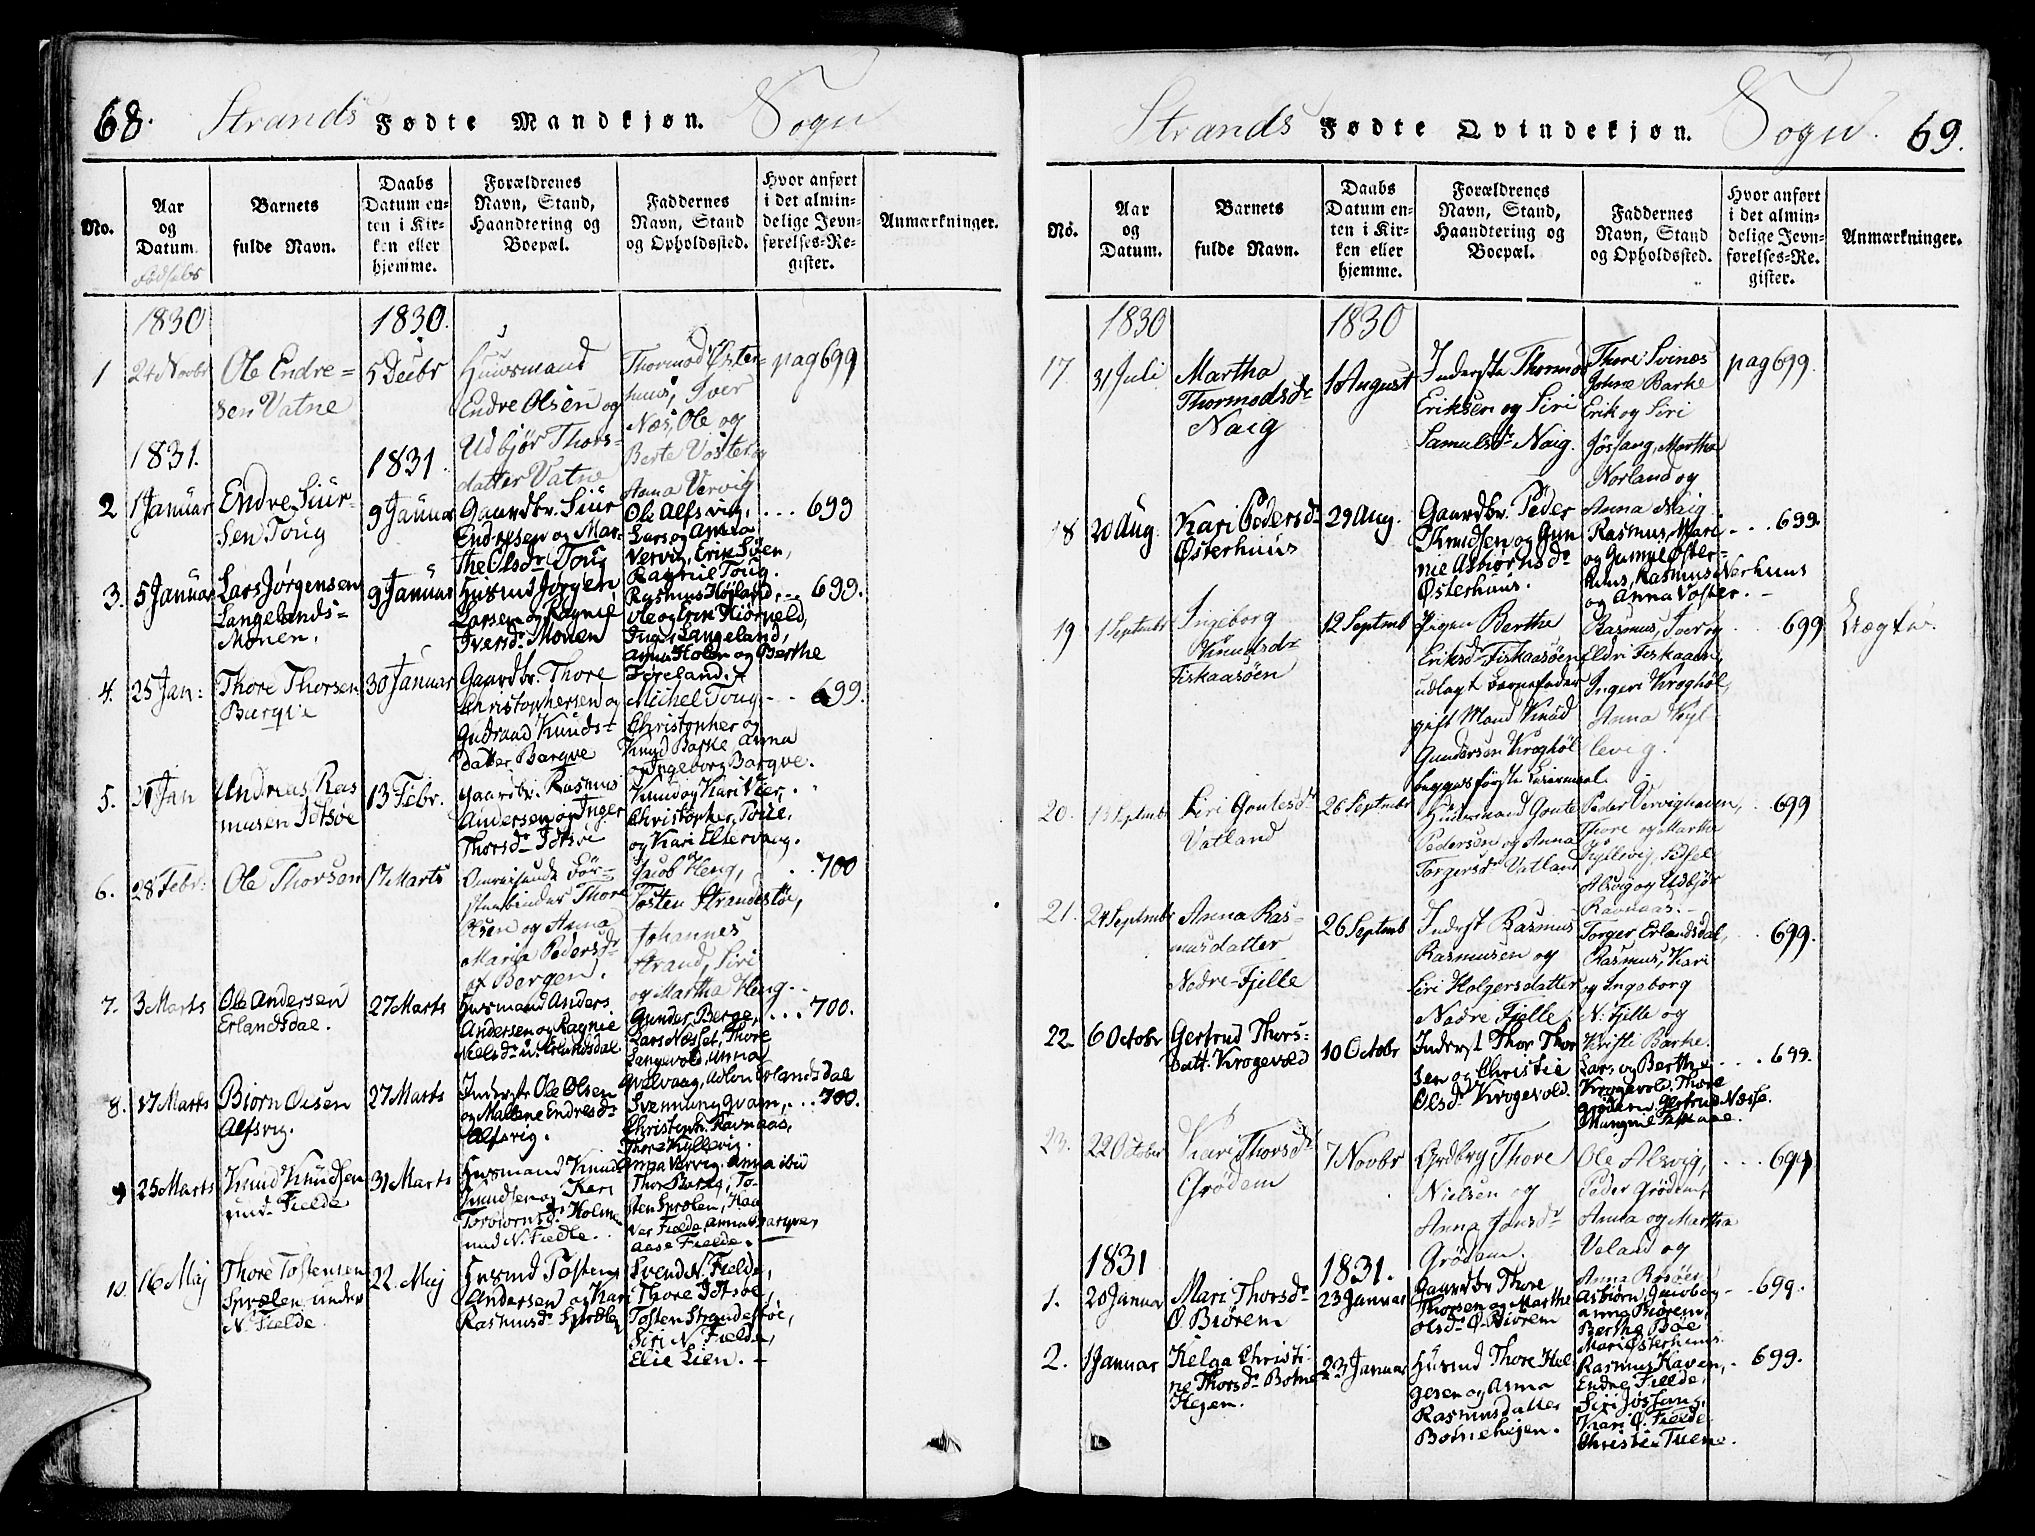 68. Strands Fødte Mandkjøn. Sogn
No.
Aar
og
Datum.
Fødsels
Barnets
fulde Navn.
Daabs
Datum en-
ten i Kir-
ken eller
hjemme.
Forældrenes
Navn, Stand,
Haandtering og
Boepæl.
Faddernes
Navn, Stand
og Opholdssted.
Hvor anført
i det almin-
delige Jevn-
førelses-Re-
gister.
Anmærkninger.
1830
1830.
1
24 Novbr
Ole Endre=
sen Vatne
5 Decbr
Huusmand
Endre Olsen og
Udbjør Thors-
datter Vatne
Thormod Øster-
huus, Iver
Næs, Ole og
Berte Voster og
Anna Vervig
pag 699
1831.
1831.
2
1 Januar
Endre Siur-
sen Toug
9 Januar
Gaardbr. Siur
Endresen og Mar-
the Olsdr Toug
Ole Alfsvig,
Lars og Anna
Vervig, Erik Søen,
Ragnie Toug.
... 699
3.
5 Januar
Lars Jørgensen
Langelands-
Monen.
9 Januar
Husmd Jørgen
Larsen og Ragnie
Iversdr Monen
Rasmus Høiland,
Ole og Erik Hiørneld,
Inger Langeland,
Anna Holen og Berthe
Tøreland.
699.
4.
25 Jan:
Thore Thorsen
Barqve
30 Januar
Gaardbr. Thore
Christophersen og
Gudraad Knuds-
datter Barqve
Michel Toug,
Christopher og
Knud Barke Anna
og Ingeborg Barqve.
- - 699.
5.
Jan
Andreas Ras
musen Idtsøe
13 Febr.
Gaardbr. Rasmus
Andersen og Inger
Thorsdr Idtsøe
Knud og Kari Vier,
Christopher Toue,
og Kari Eltervaag.
6.
28 Febr:
Ole Thorsen
17 Marts
Omreisende Bør-
stenbinder Thore
Olsen og Anna
Maria Pedersdr
af Bergen.
Jacob Heng,
Tosten Strandestøe,
Johannes
Strand, Siri
og Martha Heng
700
7.
3 Marts
Ole Andersen
Erlandsdal.
27 Marts
Husmand Anders
Andersen og Ragnie
Nielsdr u. Erlandsdal
Gunder Berge,
Lars Næsset, Thore
Langevold, Anna
Qvelvaag, Adlou Erlandsdal
... 700.
8.
17 Marts
Biørn Olsen
Alfsvig.
27 Marts
Inderste Ole Olsen
og Mallene Endresdr
Alfsvig.
Svennung Qvam,
Christenh. Ravnaas,
Thore Kyllevig.
Anna Vervig. Anna ibid
... 700.
9
25 Marts
Knud Knudsen
und- Fielde
31 Marts
Husmand Knud
Knudsen og Kari
Torbiørnsdr Holme
und N. Fielde.
Thor Barke, To-
sten Sprælen, Haa-
ver Fielde, Anna Barqve,
Aase Fielde.
10
16 Maj
Thore Tostensen
Sprælen under
N. Fielde.
22 Maj
Husmd Tosten
Andersen og Kari
Rasmusdr Sprælen
Svend N. Fielde,
Thore Idtsøe,
Tosten Strandestøe,
Siri N. Fielde,
Elie Lien.
Strands Fødte Qvindekjøn. Sogn. 69.
No.
Aar
og
Datum.
Barnets
fulde Navn.
Daabs
Datum en-
ten i Kir-
ken eller
hjemme.
Forældrenes
Navn, Stand,
Haandtering og
Boepæl.
Faddernes
Navn, Stand
og Opholdssted.
Hvor anført
i det almin-
delige Jevn-
førelses-Re-
gister.
Anmærkninger.
1830
1830
17.
31 Juli
Martha
Thormodsdr
Naig
1 August
Inderste Thormod
Eriksen og Siri
Samulsdr Naig.
Thore Svinæs
Johne Barke
Erik og Siri
Jøssang, Martha
Norland og
Anna Naig
pag 699.
18
20 Aug.
Kari Pedersdr
Østerhuus
29 Aug.
Gaardbr. Peder
Knudsen og Gun
nie Asbiørnsdr
Østerhuus.
Rasmus, Mari
og Gunnil Øster-
huus, Rasmus Nerhuus
og Anna Voster.
699.
19
1 Septembr
Ingeborg
Knudsdr
Fiskaasøen
12 Septemb
Pigen Berthe
Eriksdr Fiskaasøen
udlagt Barnefader
gift Mand Knud
Gundersen Kroghøl
begges første Leiermaal.
Rasmus, Iver og
Eldri Fiskaaen,
Ingeri Kroghøl,
Anna Kyl
levig.
699
Uægte.
20.
13 Septembr
Siri Gautesdr
Vatland
26 Septembr
Huusmand Gaute
Pedersen og Anna
Torgersdr Vatland
Peder Vervighaven,
Thore og Martha
Kyllevig, Sissel
Alsvig og Udbjør
Ravnaas.
699
21.
24 Septembr
Anna Ras-
musdatter
Nedre-Fjelle
26 Septemb
Inderst Rasmus
Rasmusen og
Siri Holgersdatter
Nedre Fjelle.
Torger Erlandsdal,
Rasmus, Kari
og Ingeborg
N. Fjelle og
Kristi Barke.
699.
22.
6 Octobr
Gertrud Thors-
datt. Krogevold
10 Octobr
Inderst Thor Thor
sen og Christie
Olsdr Krogevold.
Lars og Berthe
Krogevold, Thore
Grødem, Gertrud Næsse.
699.
23.
22 October
Kari Thorsdr
Grødem
7 Novbr
Grdbrg Thore
Nielsen og
Anna Jonsdr
Grødem.
Ole Alsvig,
Peder Grødem,
Anna og Martha
Veland og
Anna Rossøen
.... 699
1831
1831.
1.
20 Januar
Mari Thorsdr
Ø Biøren
23 Januar
Gaardbr Thore
Thorsen og Marthe
Olsdr Ø. Biøren
Asbiørn, Jacob og
Anna Biøren,
Berthe Bøe
Mari Østerhuus.
699.
2.
1 Januar
Helga Christi-
ne Thorsdr Botne
Hejen.
23 Januar
Husmd Thore Hel
gesen og Anna
Rasmusdatter
Botnehejen.
Rasmus Haven,
Endre Fielde,
Siri Jøssang,
Kari Ø. Fielde
Christi Tuen
- 699.